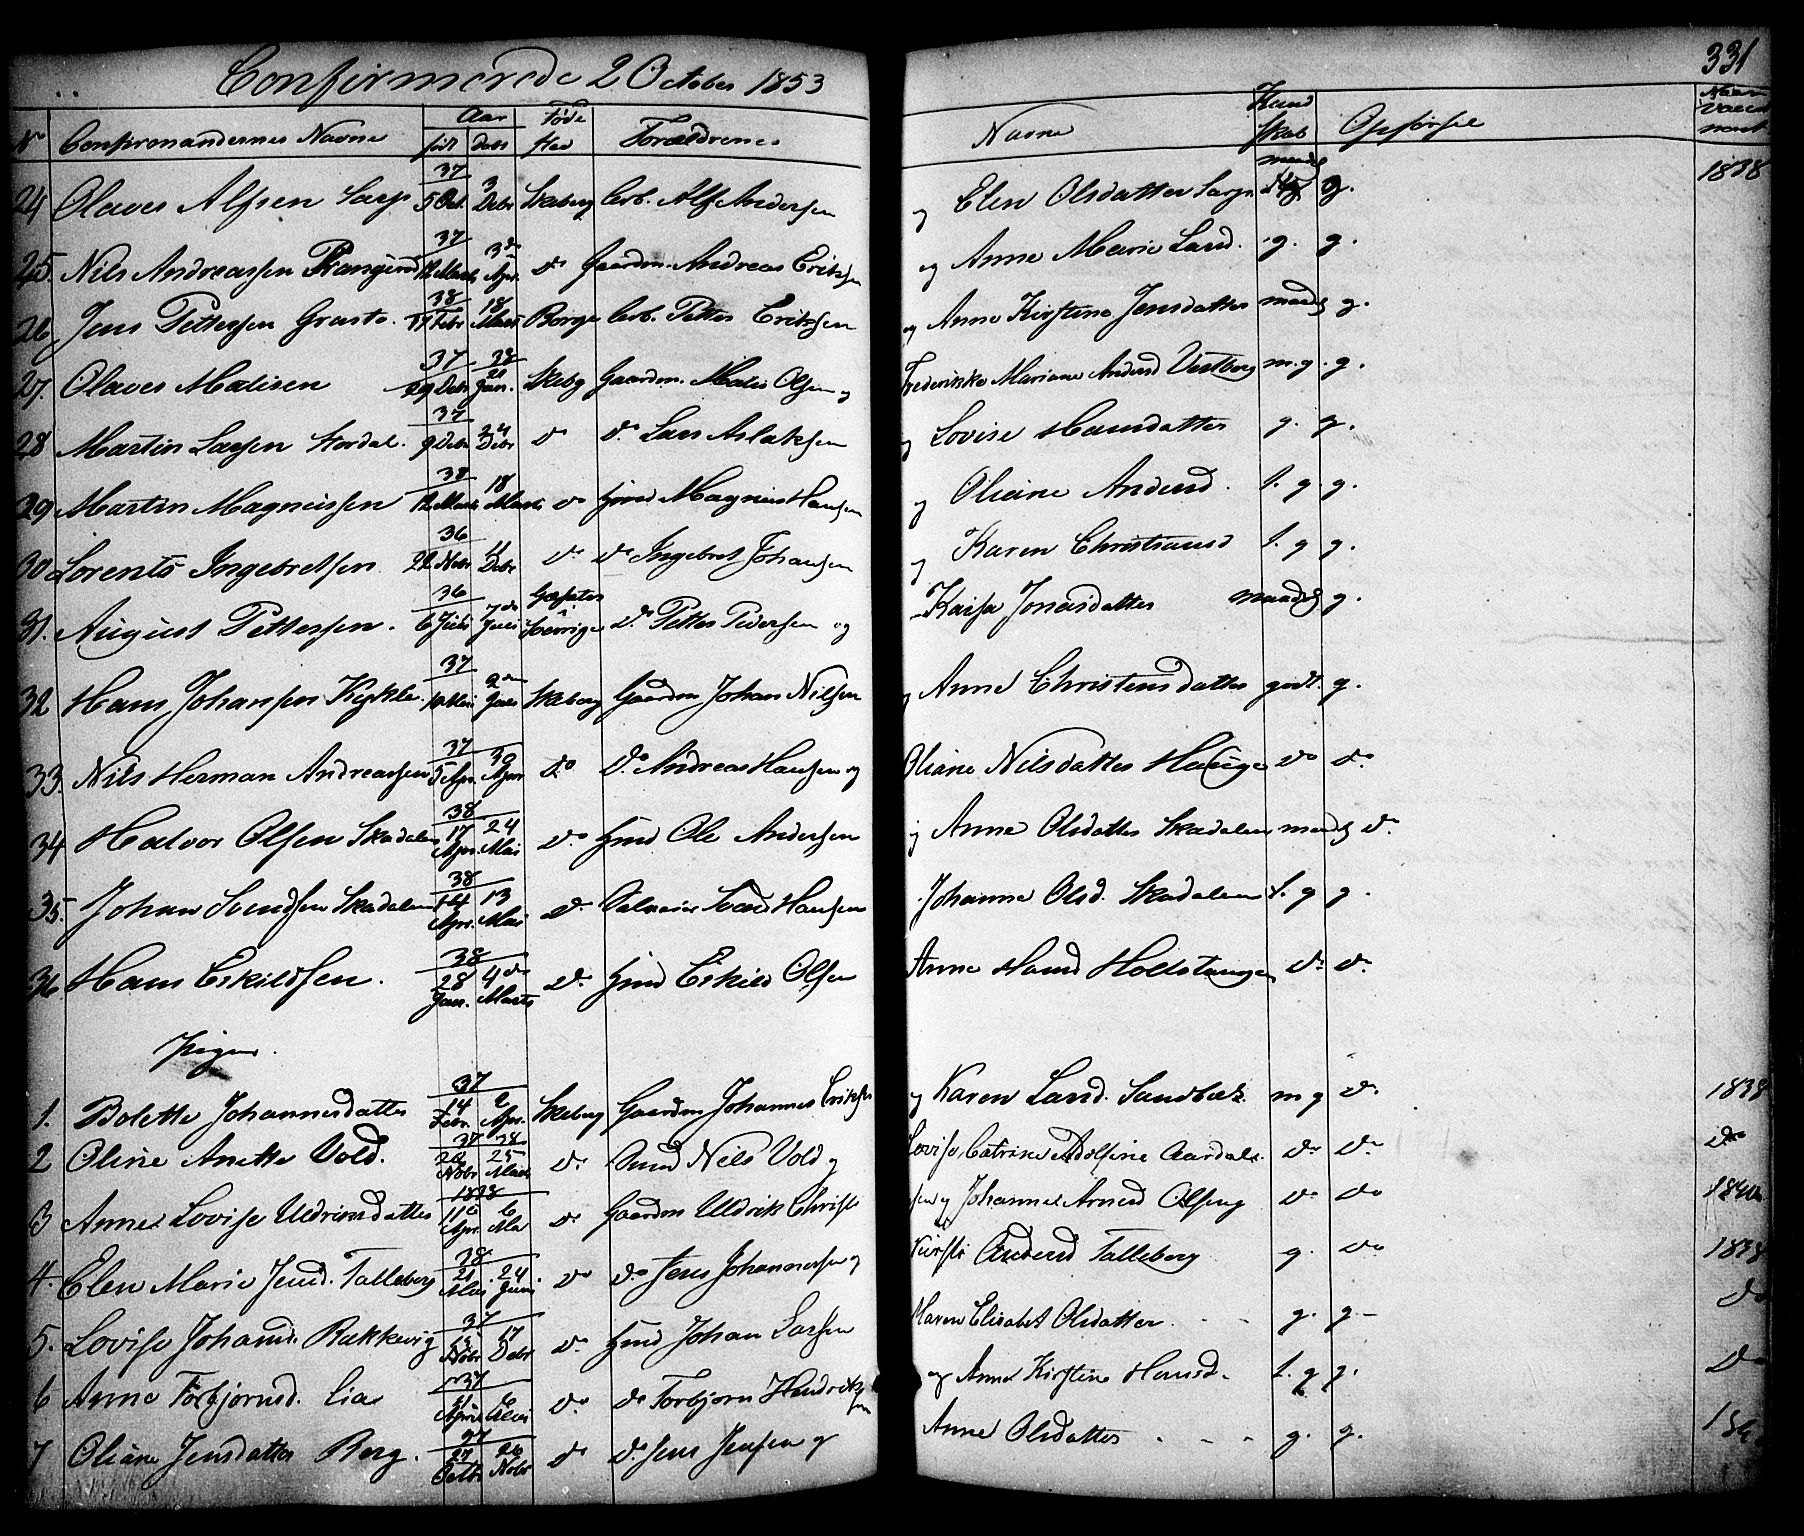 Confirmerede 2 October 1853
331
No Confirmandernes Navne Aar født døbt Føde Sted Forældrenes Navne Kund skab Opførsel Naar vaccineret
24 Olaves Alfsen Sarp 37 5 Oct. 3 Debr Skeberg Arb. Alf Andersen og Elen Olsdatter Sarp g. 1838
25. Nils Andreassen 37 12 Marts 3de Apr. do Gaardm. Andreas Eriksen og Anne Marie Larsd. g. g.
26 Jens Pettersen 38 17 Febr 18 Marts Borge Arb. Petter Eriksen og Anne Kirstine Jensdatter maadg g.
27. Olaves Madisen 37 29 Debr 38 21 Jan. Skebg Gaardm. Madis Olsen og Frederikke Mariane Andersd Vestberg m.g. g.
28 Martin Larsen Stordal. 37 9 Debr 24 Debr do do Lars Aslaksen og Lovise Hansdatter g. g.
29 Martin Magnussen 38 12 Marts 18 Marts do Hmd Magnus Hansen og Oliane Andersd. t. g. g.
30 Lorents Ingebretsen 36 22 Nobr 11 Debr do do Ingebret Johansen og Karen Christiansd t. g g.
31. August Pettersen. 36 6 Juli 7de Juli i Sverrige do Petter Pedersen og Kaisa Jonasdatter maadg g.
32 Hans Johansen 37 Mai 2den Juli Skeberg Gaardm Johan Nilsen og Anne Christensdatter godt. g.
33. Nils Herman Andreassen 37 5 Apr. 30 Apr do do Andreas Hansen og Oliane Nilsdatter Hauge do do
34 Halvor Olsen Skadalen 38 17 Apr. 24 Mai do Hmd Ole Andersen og Anne Olsdatter Skadalen maadg do
35. Johan Svendsen Skadalen 38 14 Apr. 13 Mai do Svend Hansen Johanne Olsd. Skadalen t. g g.
36 Hans Eskildsen. 38 28 Jan. 4de Marts do Hmd Eskild Olsen Anne Hansd Holdstangen do do
Piger.
1. Bolette Johannesdatter 37 14 Febr. 2 Apr. Skeberg Gaardm Johannes Eriksen og Karen Larsd. Sandbæk m g do 1838
2 Oline Anette Vold. 37 26 Nobr 38 25 Marts do Nils Vold og Lovise Catrine Adolfine Aardal. do do do
3 Anne Lovise Uldriksdatter 1838 11 Apr. 6 Mai do Gaardm Uldrik Christensen og Johanne Arnesd do do 1840
4. Elen Marie Jensd. Talleberg 38 21 Mai 24 Juni do do Jens Johannessen og Kirsti Andersd Talleberg g. do 1838
5. Lovise Johansd. Rækkevig 37 15 Nobr 17 Debr do Hmd Johan Larsen Maren Elisabet Olsdatter g. g. do
6 Anne Torbjørnsd. Lia 37 April Mai do do Torbjørn Hendriksen og Anne Kirstine Hansd. t. g g. do
7 Oliane Jensdatter Berg. 37 27 Octbr 26 Nobr do do Jens Jensen og Anne Olsdatter g. g.